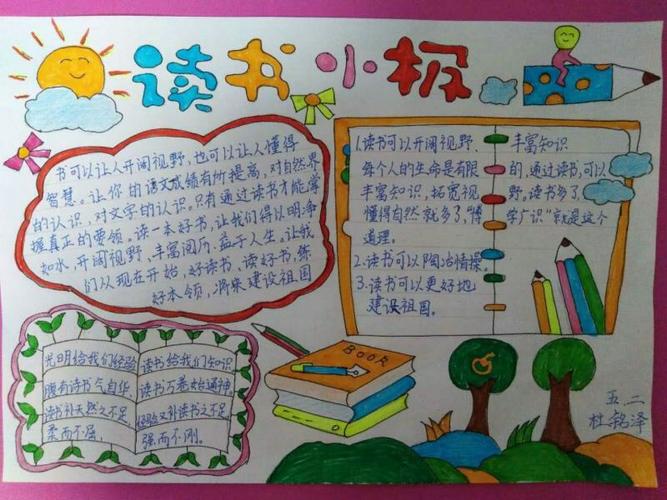 读书小报
书可以让人开阔视野，也可以让人懂得
智慧。让你的语文成绩有所提高，对自然界
的认识，对文字的认识。只有通过读书才能掌
握真正的要领。读一本好书，让我们得以明净
如水，开阔视野，丰富阅历，益于人生。让我
们从现在开始，好读书、读好书，练
好本领，将来建设祖国
1.读书可以开阔视野，丰富知识
每个人的生命是有限的，通过读书，可以
丰富知识，拓宽视野。读书多了，
懂得自然就多了，"博学广识"就是这个
道理。
2.读书可以陶冶情操。
3.读书可以更好地
建设祖国。
光明给我们经验
腹有诗书气自华
读书补天然之不足
柔而不屈，
读书给我们知识
读书万卷始通神。
经验又补读书之不足
强而不刚。
BOOR
五.二
杜铭泽